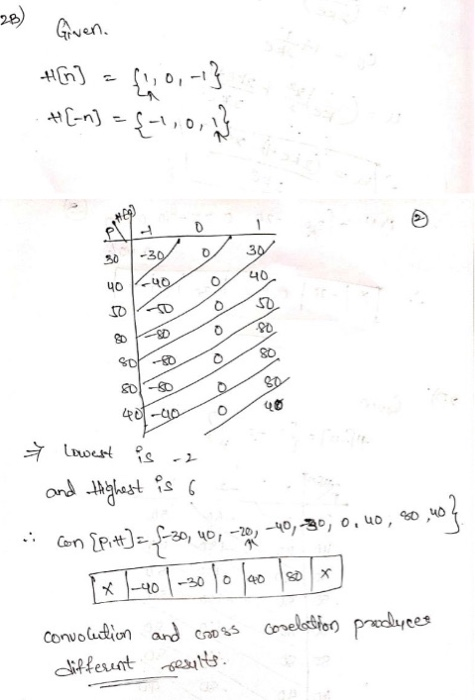 2B)
Given.
H[n] = {1, 0, -1}
↑
H[-n] = {-1, 0, 1}
↑
②
P \ H[n] -1 0 1
30 -30 0 30
40 -40 0 40
50 -50 0 50
80 -80 0 80
80 -80 0 80
80 -80 0 80
40 -40 0 40
⇒ Lowest is -2
and Highest is 6
∴ Con {P,H} = {-30, 40, -20, -40, -30, 0, 40, 80, 40}
↑
x | -40 | -30 | 0 | 40 | 80 | x
convolution and cross corelation produces
different results.